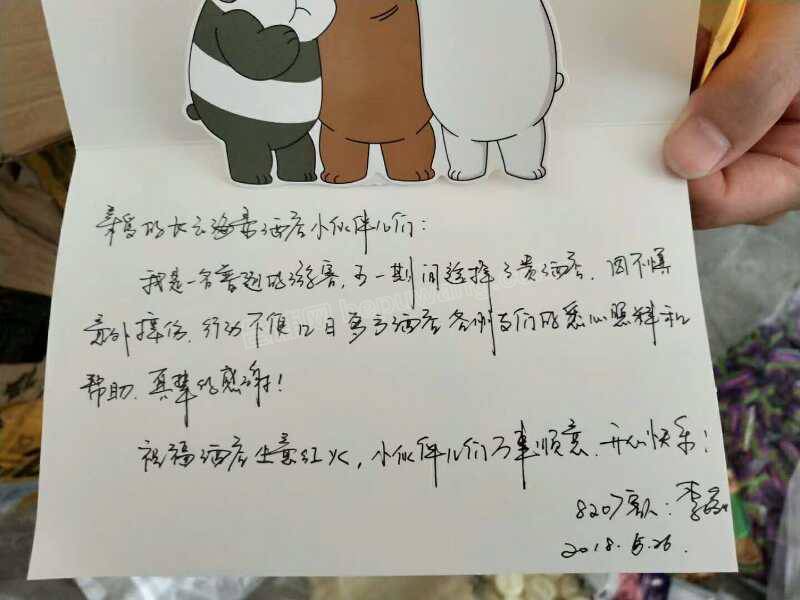 亲爱的大云酒店小伙伴儿们：
我是一名普通的游客，五一期间选择了贵酒店，因不慎
意外摔伤，行动不便，日多亏酒店各们的悉心照料和
帮助，真挚的感谢！
祝福酒店生意红火，小伙伴儿们万事顺意，开心快乐！
8207客人：李
2018.5.26.